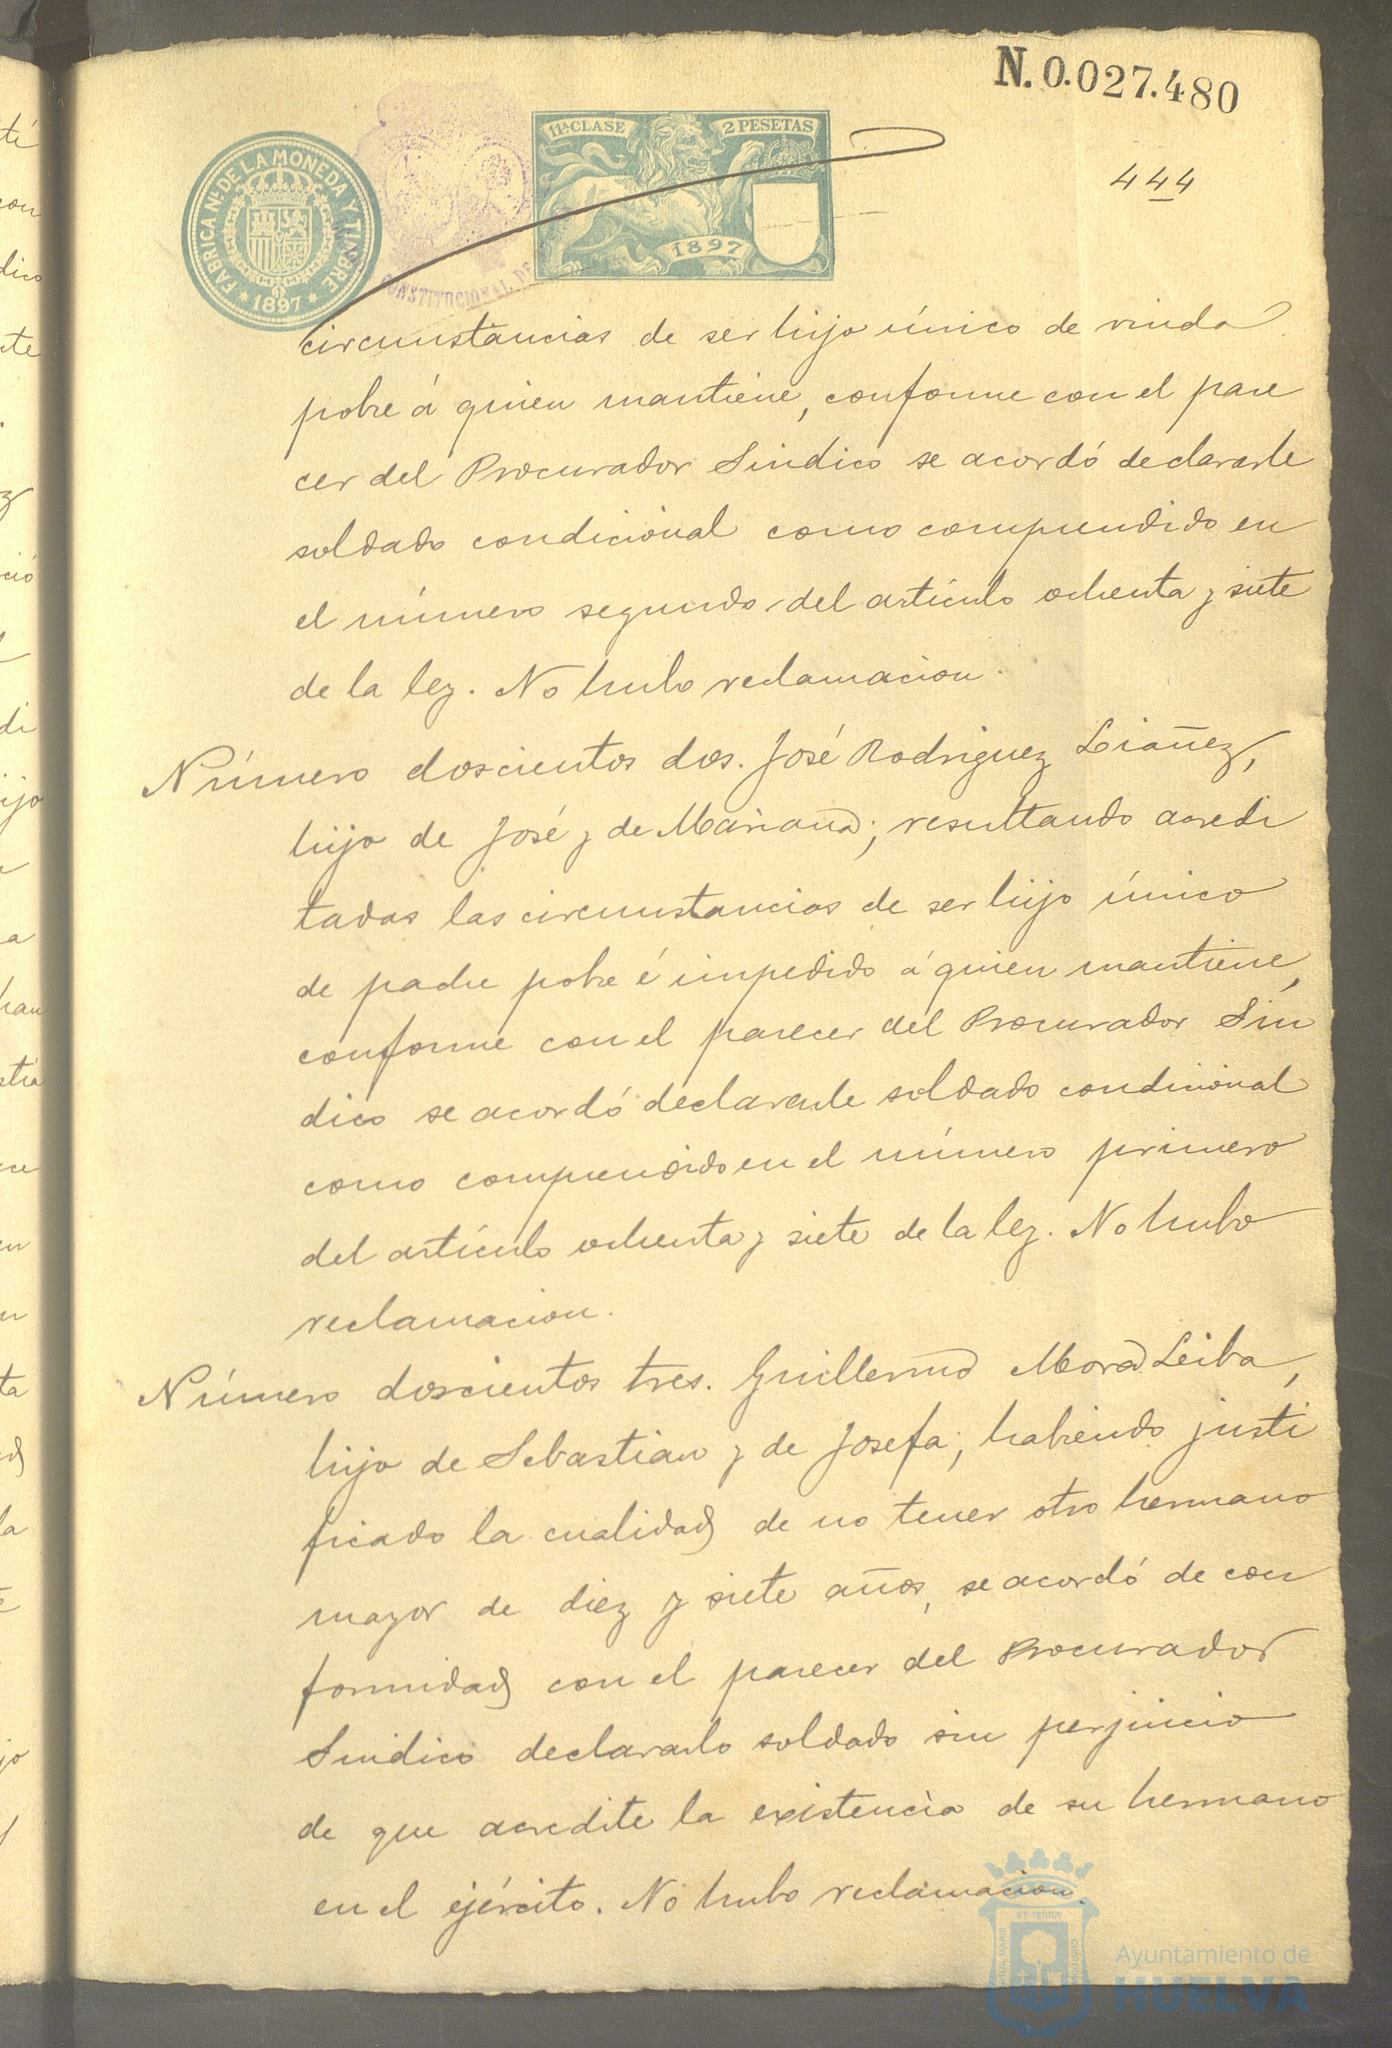 N. 0.027.480
444
FABRICA NL. DE LA MONEDA Y TIMBRE
* 1897 *
CONSTITUCIONAL DE
11ª CLASE 2 PESETAS
1897
circumstancias de ser hijo único de viuda
pobre á quien mantiene, conforme con el pare
cer del Procurador Sindico se acordó declararle
soldado condicional como comprendido en
el número segundo del artículo ochenta y siete
de la ley. No hubo reclamacion.
Número doscientos dos. José Rodriguez Liañez,
hijo de José y de Mariana; resultando acredi
tadas las circumstancias de ser hijo único
de padre pobre é impedido á quien mantiene,
conforme con el parecer del Procurador Sin
dico se acordó declararle soldado condicional
como comprendido en el número primero
del artículo ochenta y siete de la ley. No hubo
reclamacion.
Número doscientos tres. Guillermo Mora Leiba,
hijo de Sebastian y de Josefa; habiendo justi
ficado la cualidad de no tener otro hermano
mayor de diez y siete años, se acordó de con
formidad con el parecer del Procurador
Sindico declararlo soldado sin perjuicio
de que acredite la existencia de su hermano
en el ejército. No hubo reclamacion.
Ayuntamiento de
HUELVA